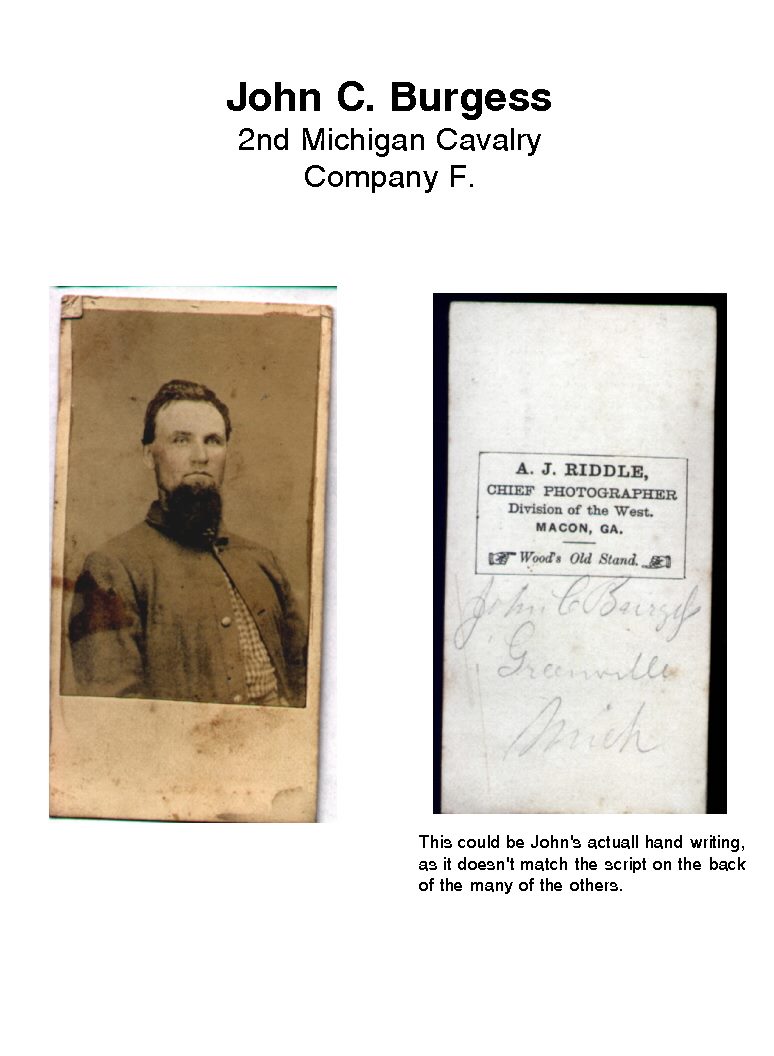 John C. Burgess
2nd Michigan Cavalry
Company F.
A. J. RIDDLE,
CHIEF PHOTOGRAPHER
Division of the West.
MACON, GA.
Wood's Old Stand.
John C Burgess
Greenville
Mich
This could be John's actuall hand writing,
as it doesn't match the script on the back
of the many of the others.